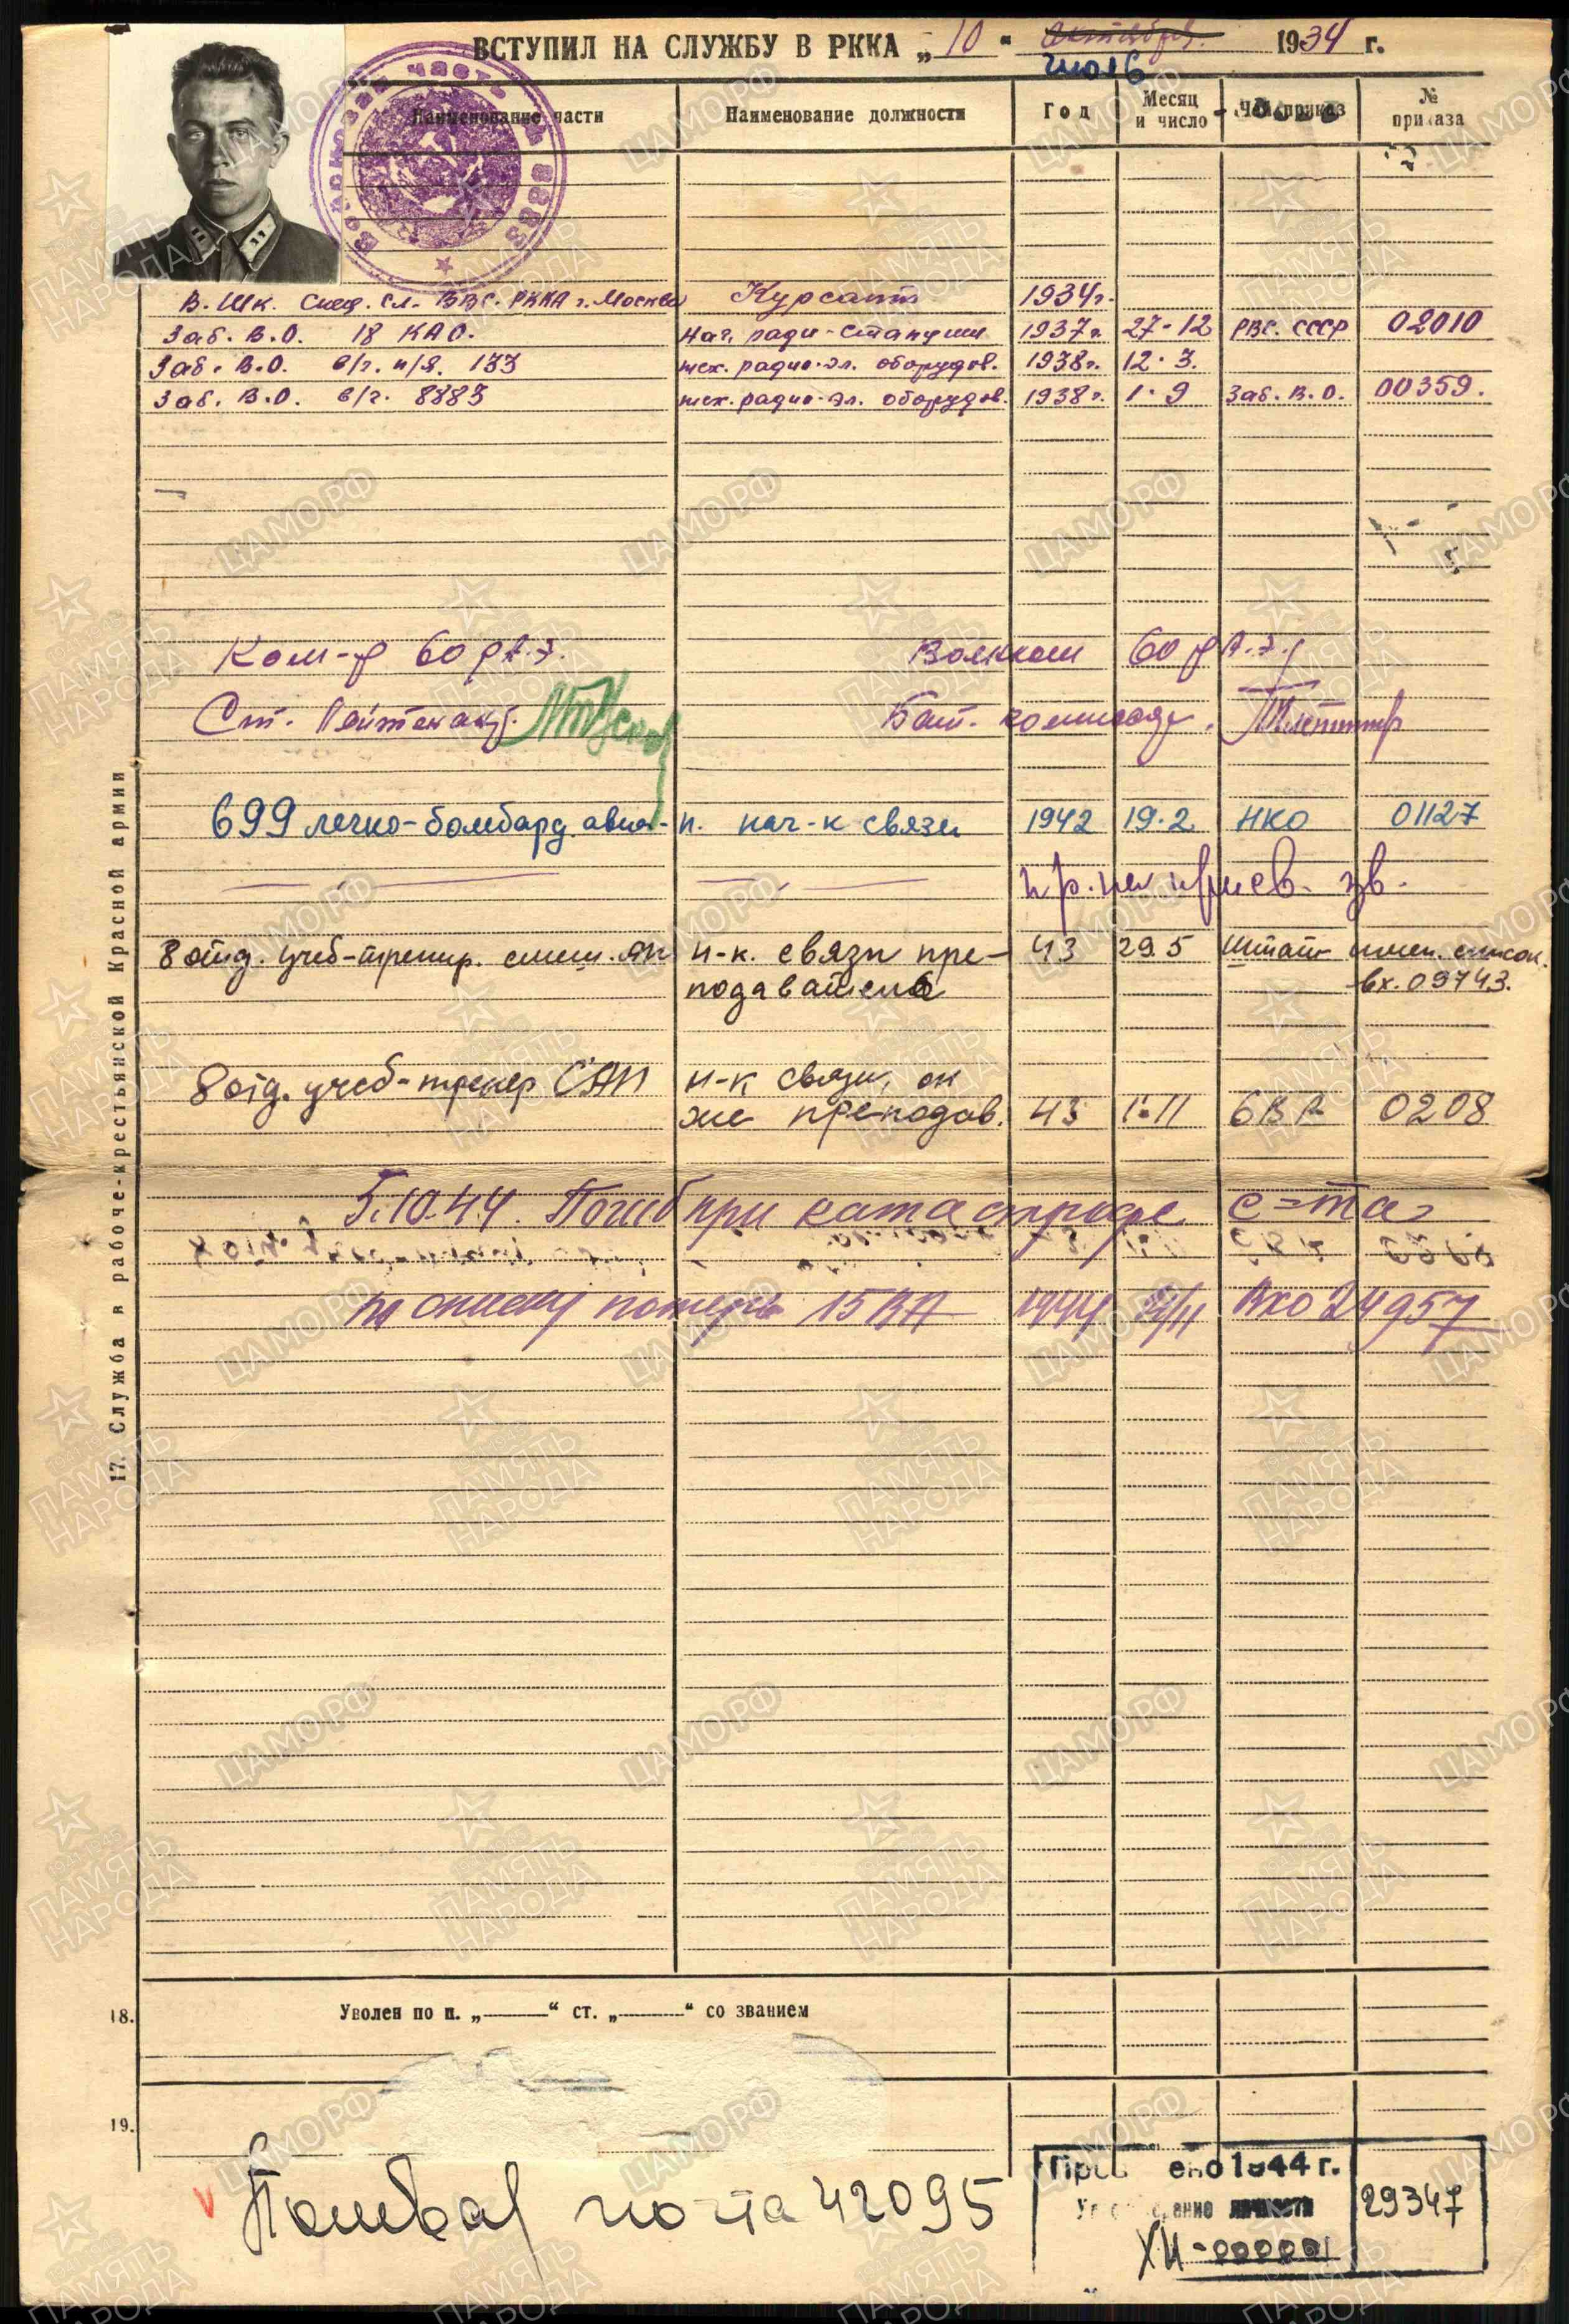 ВСТУПИЛ НА СЛУЖБУ В РККА „10“ октября. 1934 г.
июль
Наименование части Наименование должности Год Месяц и число Чей приказ № приказа
Войсковая часть 8883
В. Шк. Спец. Сл. ВВС. РККА г. Москва Курсант 1934г.
Заб. В.О. 18 КАО. нач. ради-станции 1937г. 27-12 РВС. СССР 02010
Заб. В.О. в/г. п/я. 133 тех. радио-эл. оборудов. 1938г. 12.3.
Заб. В.О. в/г. 8883 тех. радио-эл. оборудов. 1938г. 1.9 Заб. В.О. 00359.
Ком-р 60 Военком 60
Ст. Лейтенант. Бат. комиссар.
699 легко-бомбард авиа-п. нач-к связи 1942 19.2 НКО 01127
пр. на присв. зв.
8 отд. учеб-тренир. смеш. ап н-к. связи пре- 43 29.5 Штат имен. список.
подаватель вх. 09743.
8 отд. учеб-тренер САП н-к связи, он
же преподав. 43 1.11 6ВА 0208
5.10.44. Погиб при катастрофе с-та
по списку потерь 15ВА 1944 /11 Вхо 24957
17. Служба в рабоче-крестьянской Красной армии
18. Уволен по п. „ “ ст. „ “ со званием
19.
Полевая почта 42095
1944 г.
личности
ХИ-000001
29347
ЦАМО.РФ
ПАМЯТЬ НАРОДА
1941-1945